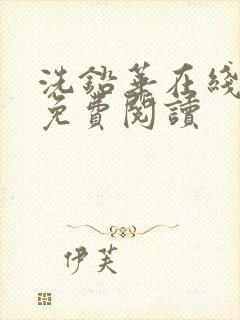 洗鉛華在綫
免費閱讀
伊芙